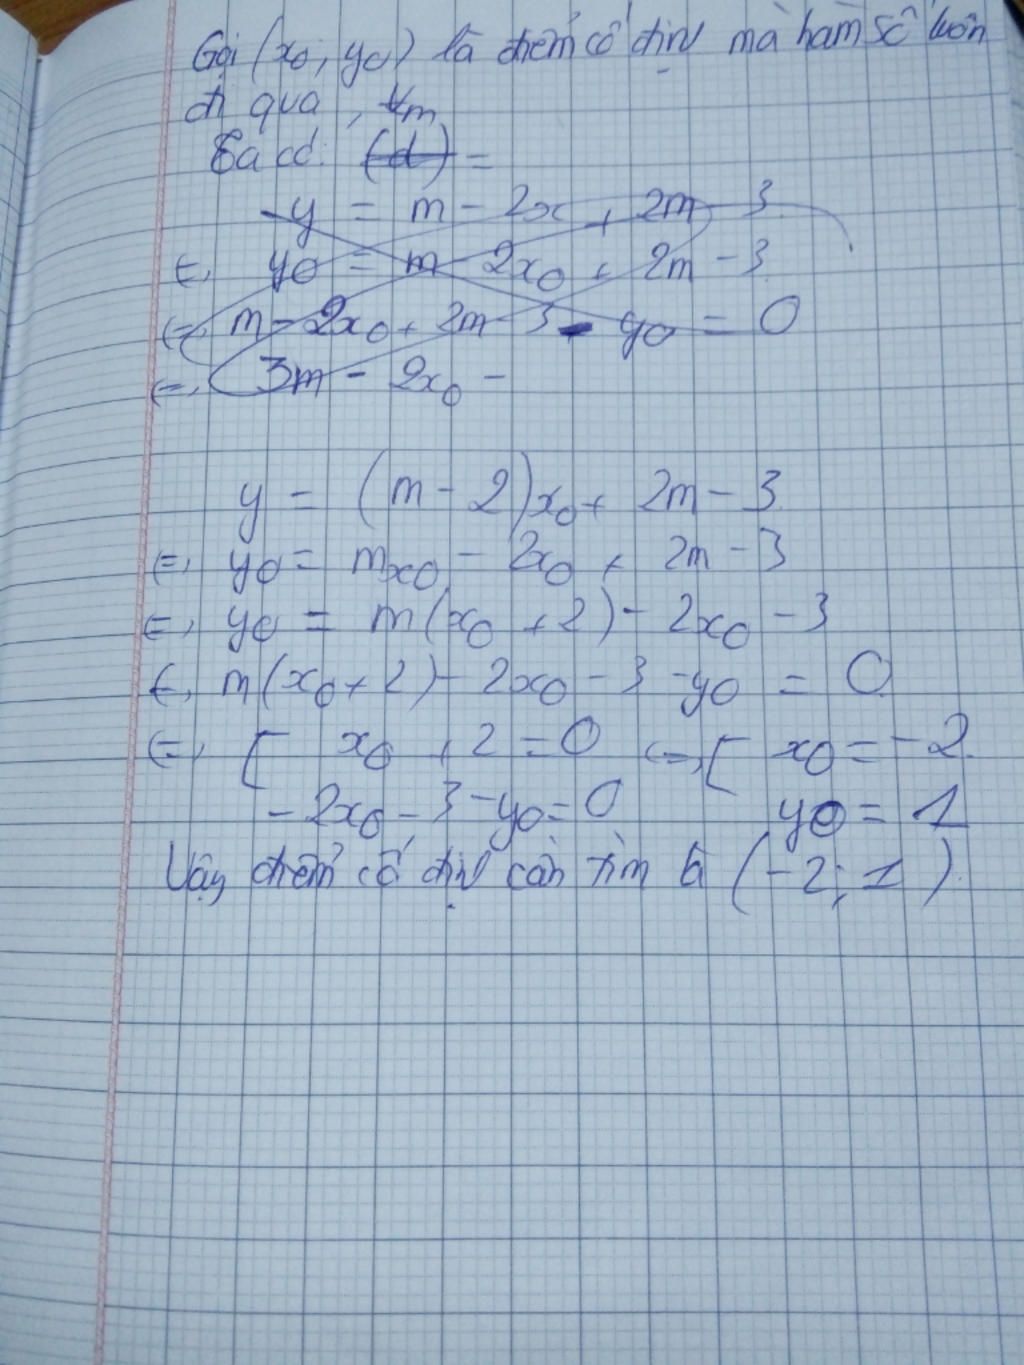 Gọi (x₀; y₀) là điểm cố định mà hàm số luôn
đi qua, ∀m
Ta có: (d) =
y = m - 2x + 2m - 3
⇔ y₀ = m - 2x₀ + 2m - 3
⇔ m - 2x₀ + 2m - 3 - y₀ = 0
⇔ 3m - 2x₀ -
y = (m - 2)x₀ + 2m - 3
⇔ y₀ = mx₀ - 2x₀ + 2m - 3
⇔ y₀ = m(x₀ + 2) - 2x₀ - 3
⇔ m(x₀ + 2) - 2x₀ - 3 - y₀ = 0
⇔ [ x₀ + 2 = 0 ⇔ [ x₀ = -2
-2x₀ - 3 - y₀ = 0 y₀ = 1
Vậy điểm cố định cần tìm là (-2; 1).